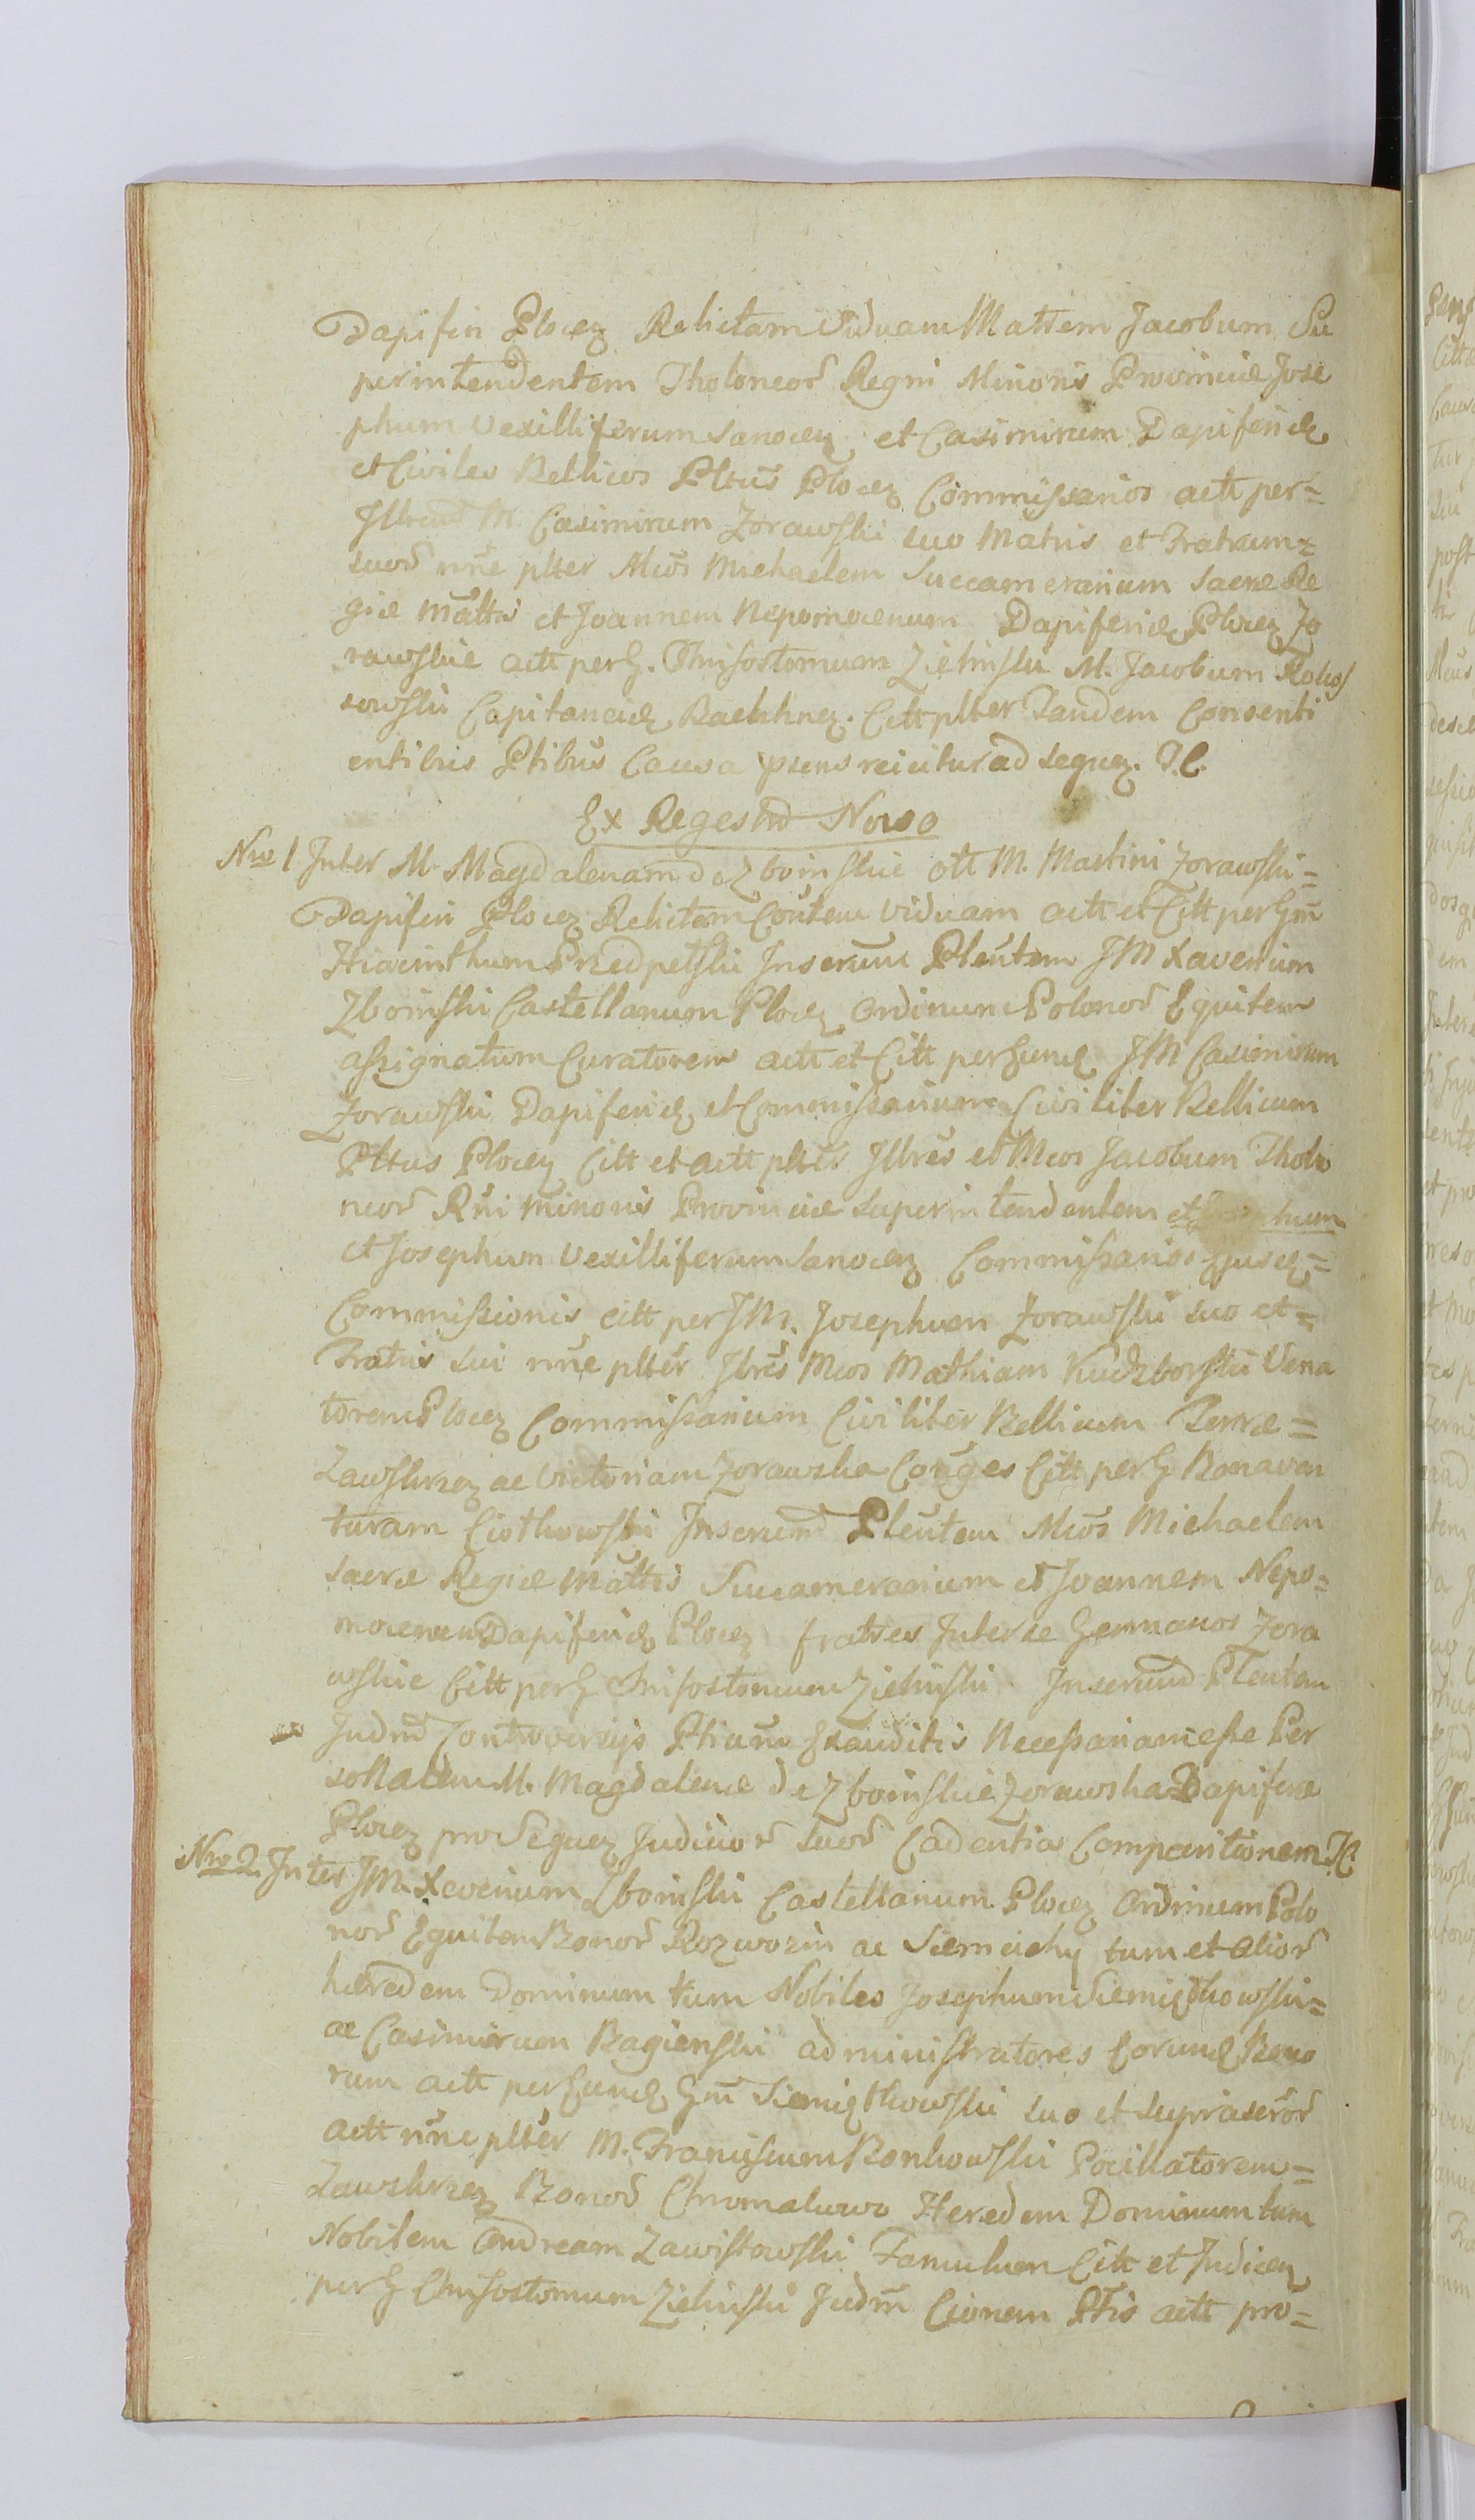 Dapiferi Plocen Relictam Viduam Matrem Jacobum Su
perintendentem Tholoneor Regni Minoris Provinciæ Jose
phum Vexilliferum Sanocen et Casimirum Dapiferid
et Civiles Bellicos Pltus Plocen Commissarios actt per=
Casimirum Zorawski suo Matris et Fratrum=
suor nne plter Mcos Michaelem Succamerarium Sacræ Re
giæ Mattis et Joannem Nepomocenum Dapiferid Plocen Zo
rawskie actt per G. Chrisostomum Zielinski M. Jacobum
sowski Capitaneid Citt plter Tandem Consenti
entibus Ptibus Causa psens reicitur ad sequen. T.C.
Ex Regestro Novo
Nro 1 Inter M. Magdalenam de Zboinskie ott M. Martini Zorawski=
Dapiferi Plocen Relictam Contem Viduam actt et Citt per Gm
Hiacinthum Przedpelski Inserum Plentem JM Xaverium
Zboinski Castellanum Plocen Ordinum Polonor Equitem
assignatum Curatorem actt et Citt per eund JM Casimirum
Zorawski Dapiferid et Commissarium Civiliter Bellicum
Pltus Plocen Citt et actt plter Jllres et Mcos Jacobum Tholo
neor Rni Minoris Provinciæ Superintendentem et Josephum
et Josephum Vexilliferum Sanocen Commissarios ejusd=
Commissionis citt per JM. Josephum Zorawski suo et=
Fratris sui nne plter Jlres Mcos Mathiam Kuczborski Vena
torem Plocen Commissarium Civiliter Bellicum Terræ=
Zawskrzen ac Victoriam Zorawska Conges Citt per G Bonaven
turam Ciotkowski Inserend Plentem Mcos Michaelem
Sacræ Regiæ Mattis Succamerarium et Joannem Nepo=
mocenum Dapiferid Plocen fratres Inter se Germanos Zora
wskie Citt per G Chrisostomum Zielinski Inserend Plentem
Judm Controversijs Ptium Exauditis Necessariam esse Per
sonalem M. Magdalenæ de Zboinskie Zorawska Dapiferæ
Plocen pro Sequen Judicior suor Cadentia Comparitionem TC.
Nro 2. Inter JM. Xaverium Zboinski Castellanum Plocen Ordinum Polo
nor Equitem Bonor Rozwozin ac Siemcichy tum et alior
hæredem Dominum tum Nobiles Josephum Siemiątkowski=
ac Casimirum Bagienski administratores Eorund Bono
rum actt per eund Gm Siemiątkowski suo et suprascror
actt nne plter M. Franciscum Bonkowski Pocillatorem=
Zawskrzen Bonor Chromakowo Heredem Dominum tum
Nobilem Andream Zawistowski Famulum Citt et Judicen
per G Chrisostomum Zielinski Judm Cionem Ptis actt pro=